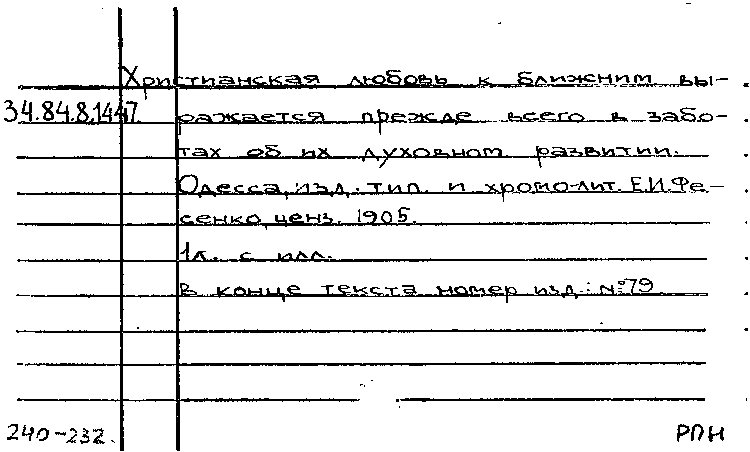 Христианская любовь к ближним вы-
34.84.8.1447. ражается прежде всего в забо-
тах об их духовном развитии.
Одесса, изд. тип. и хромо-лит. Е.И.Фе-
сенко, ценз. 1905.
1л. с илл.
В конце текста номер изд.: №79.
240-232.
РПН